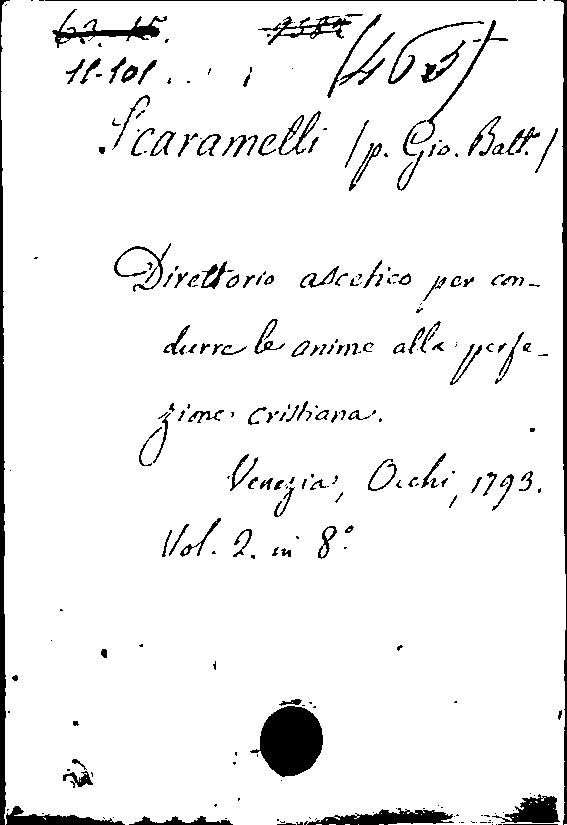 63. 15.
11-101
Scaramelli (p. Gio. Batt.)
Direttorio ascetico per con-
durre le anime alla perfe-
zione cristiana.
Venezia, Occhi, 1793.
Vol. 2. in 8°